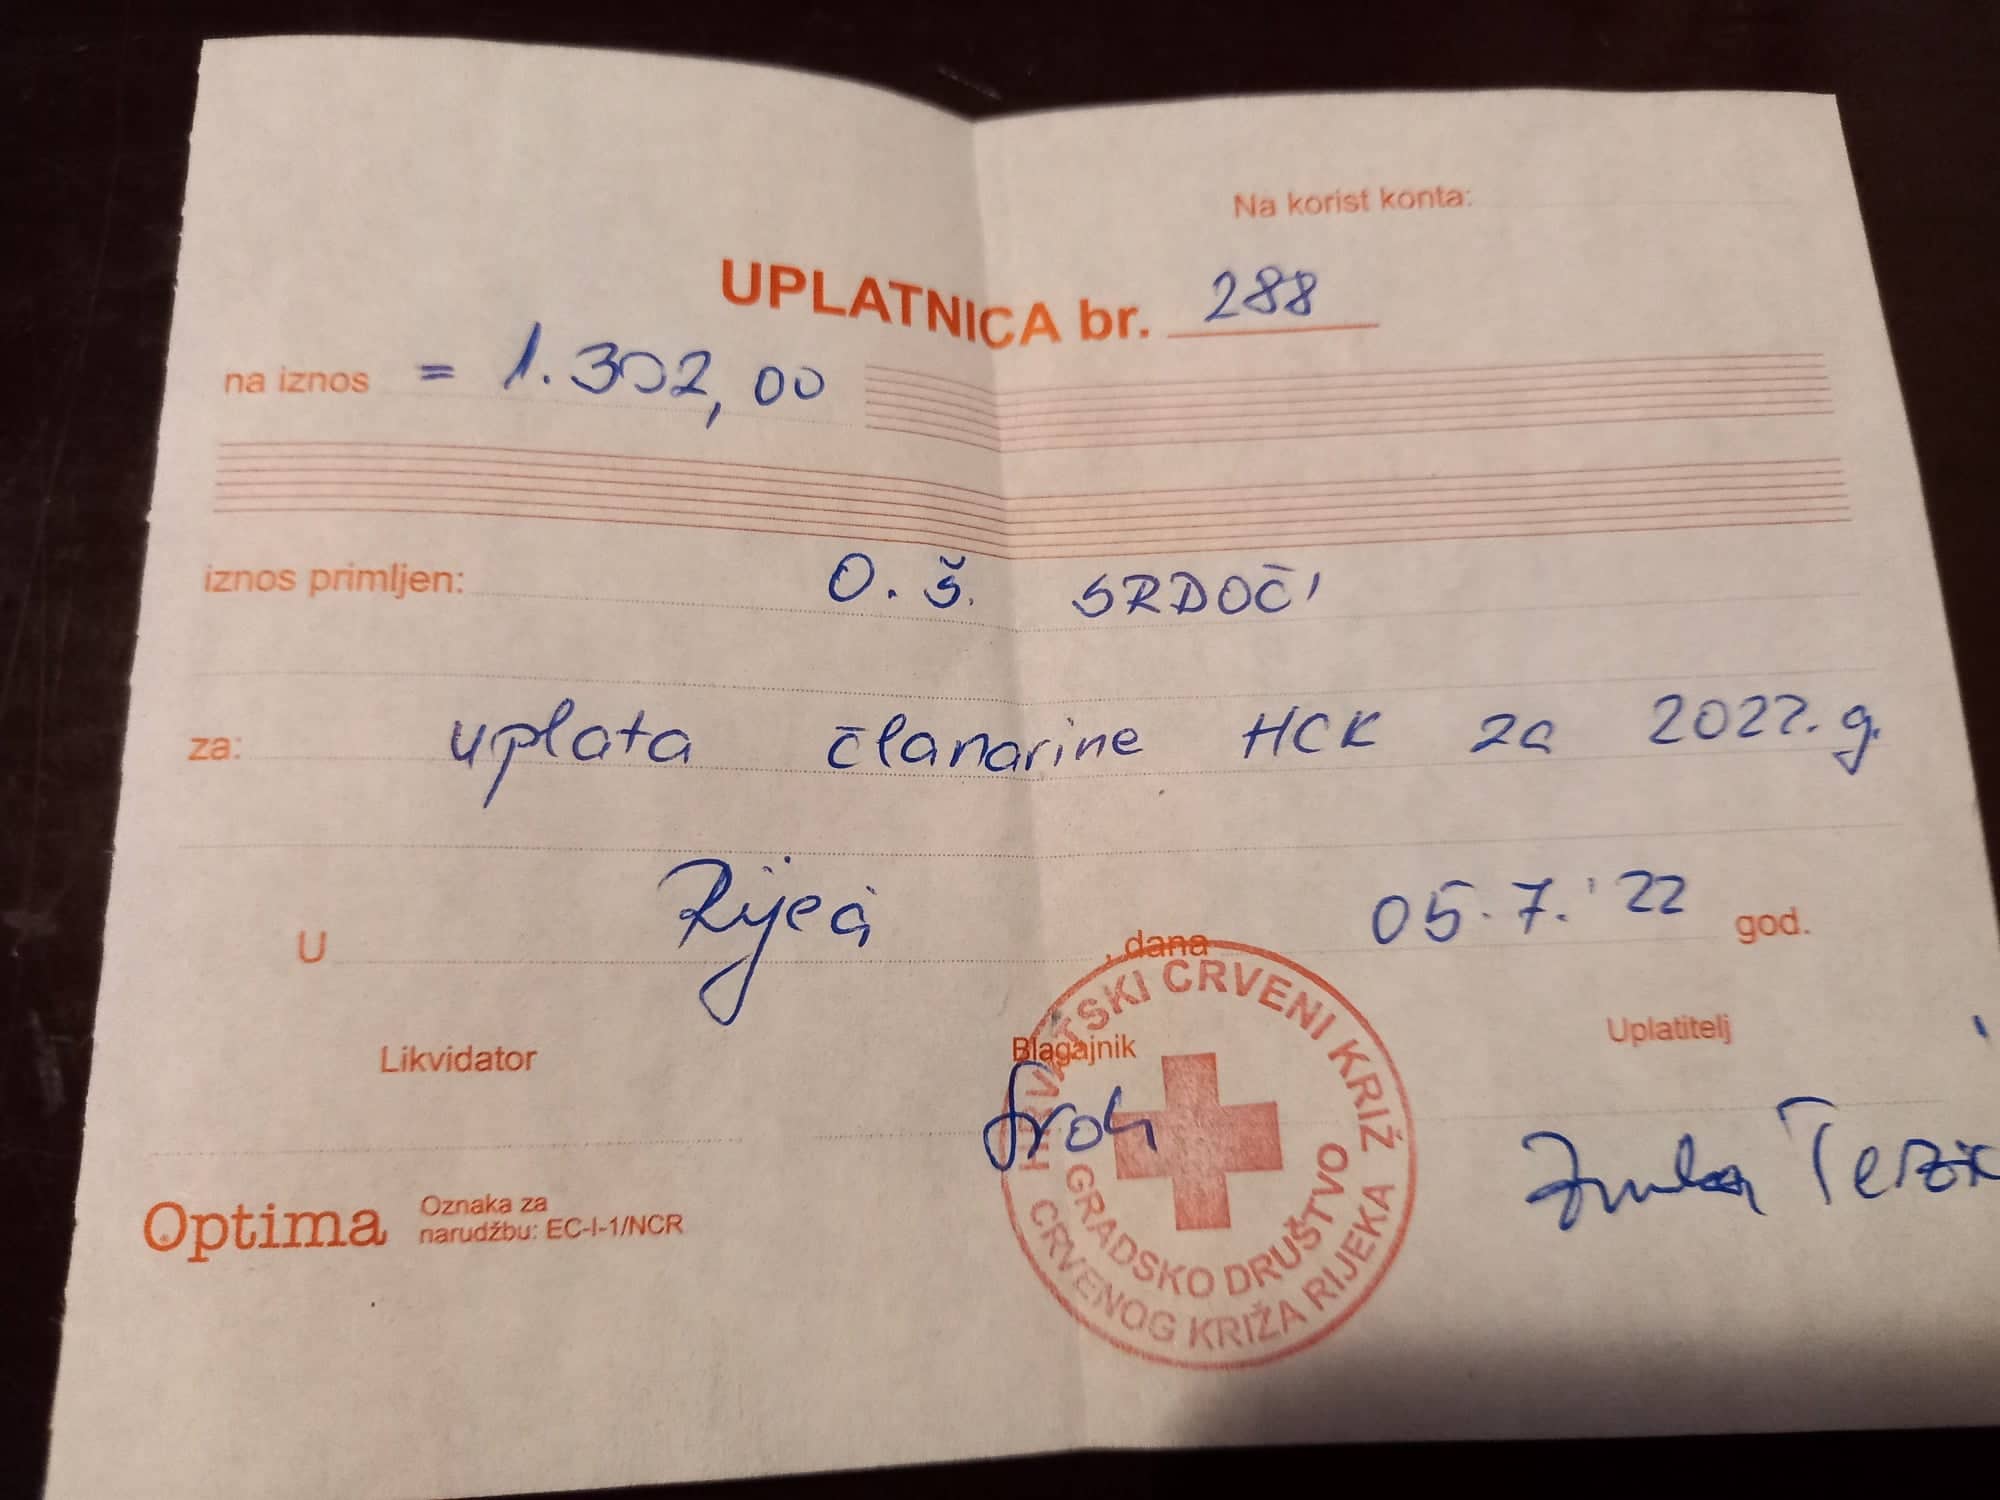 Na korist konta:
UPLATNICA br. 288
na iznos = 1.302,00
iznos primljen: O.Š. SRDOČI
za: uplata članarine HCK za 2022. g.
U Rijeci, dana 05.7.'22 god.
Likvidator Blagajnik Uplatitelj
Optima Oznaka za
narudžbu: EC-I-1/NCR
HRVATSKI CRVENI KRIŽ
GRADSKO DRUŠTVO
CRVENOG KRIŽA RIJEKA